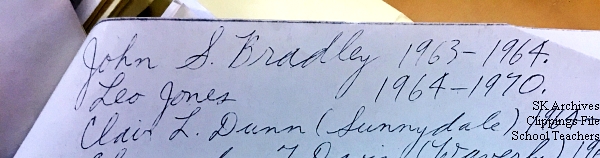 John S. Bradley 1963-1964.
Leo Jones 1964-1970.
Clair L. Dunn (Sunnydale)
SK Archives
Clippings File
School Teachers